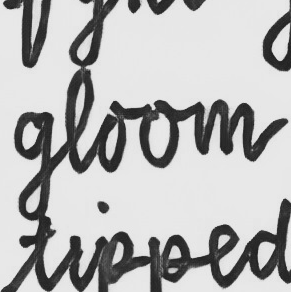 gloom
tipped